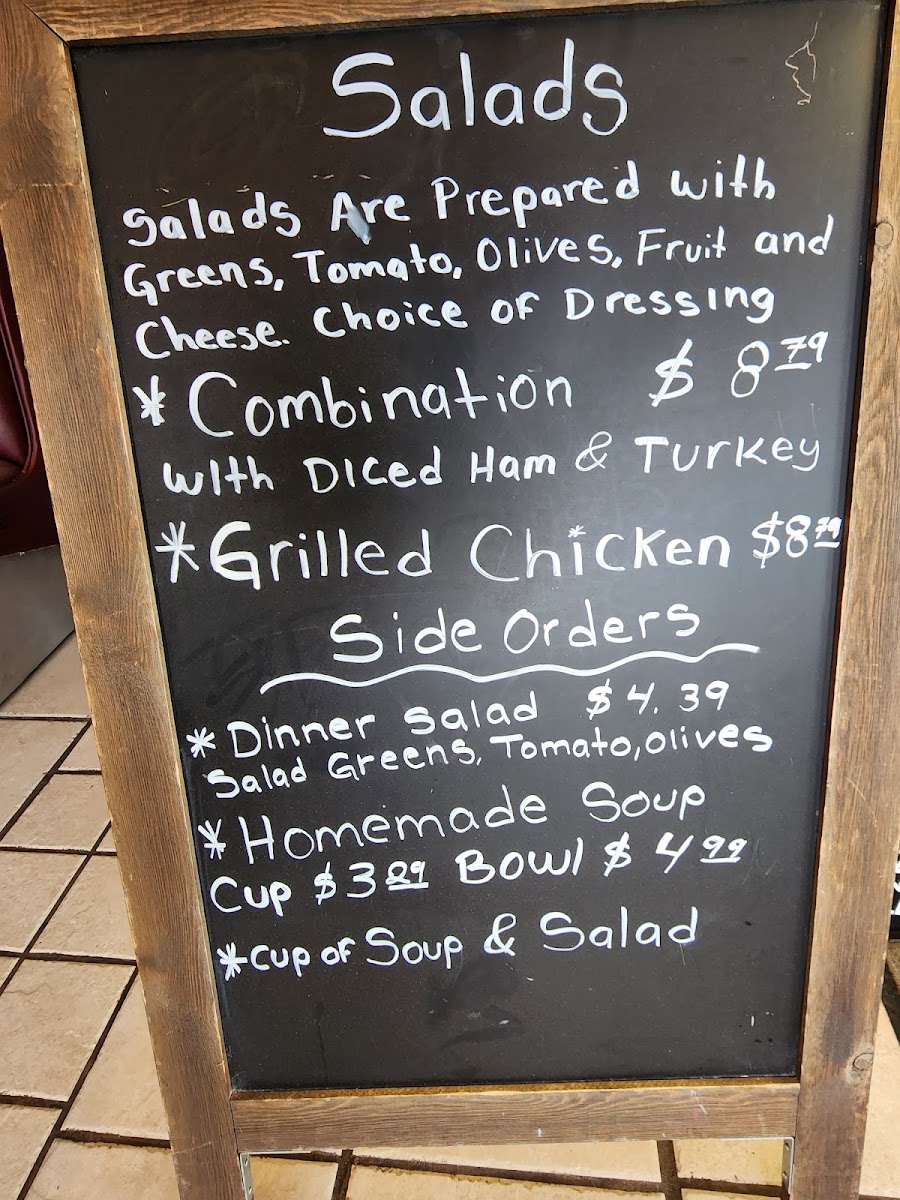 Salads
Salads Are Prepared with
Greens, Tomato, Olives, Fruit and
Cheese. Choice of Dressing
* Combination $ 8 79
with Diced Ham & Turkey
* Grilled Chicken $8 79
Side Orders
* Dinner Salad $4.39
Salad Greens, Tomato, Olives
* Homemade Soup
Cup $3 89 Bowl $ 4 99
* Cup of Soup & Salad